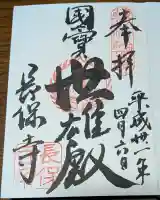 奉拝
平成廿一年
四月六日
國寶
世雄殿
長保寺